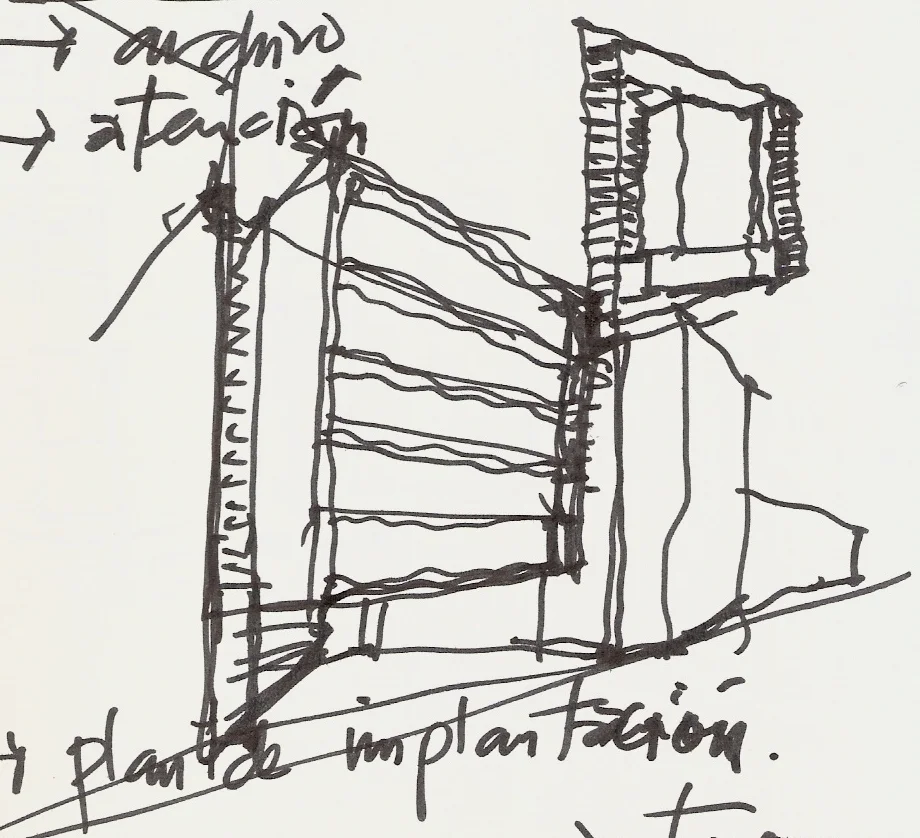 → archivo
→ atención
→ planta de implantación.